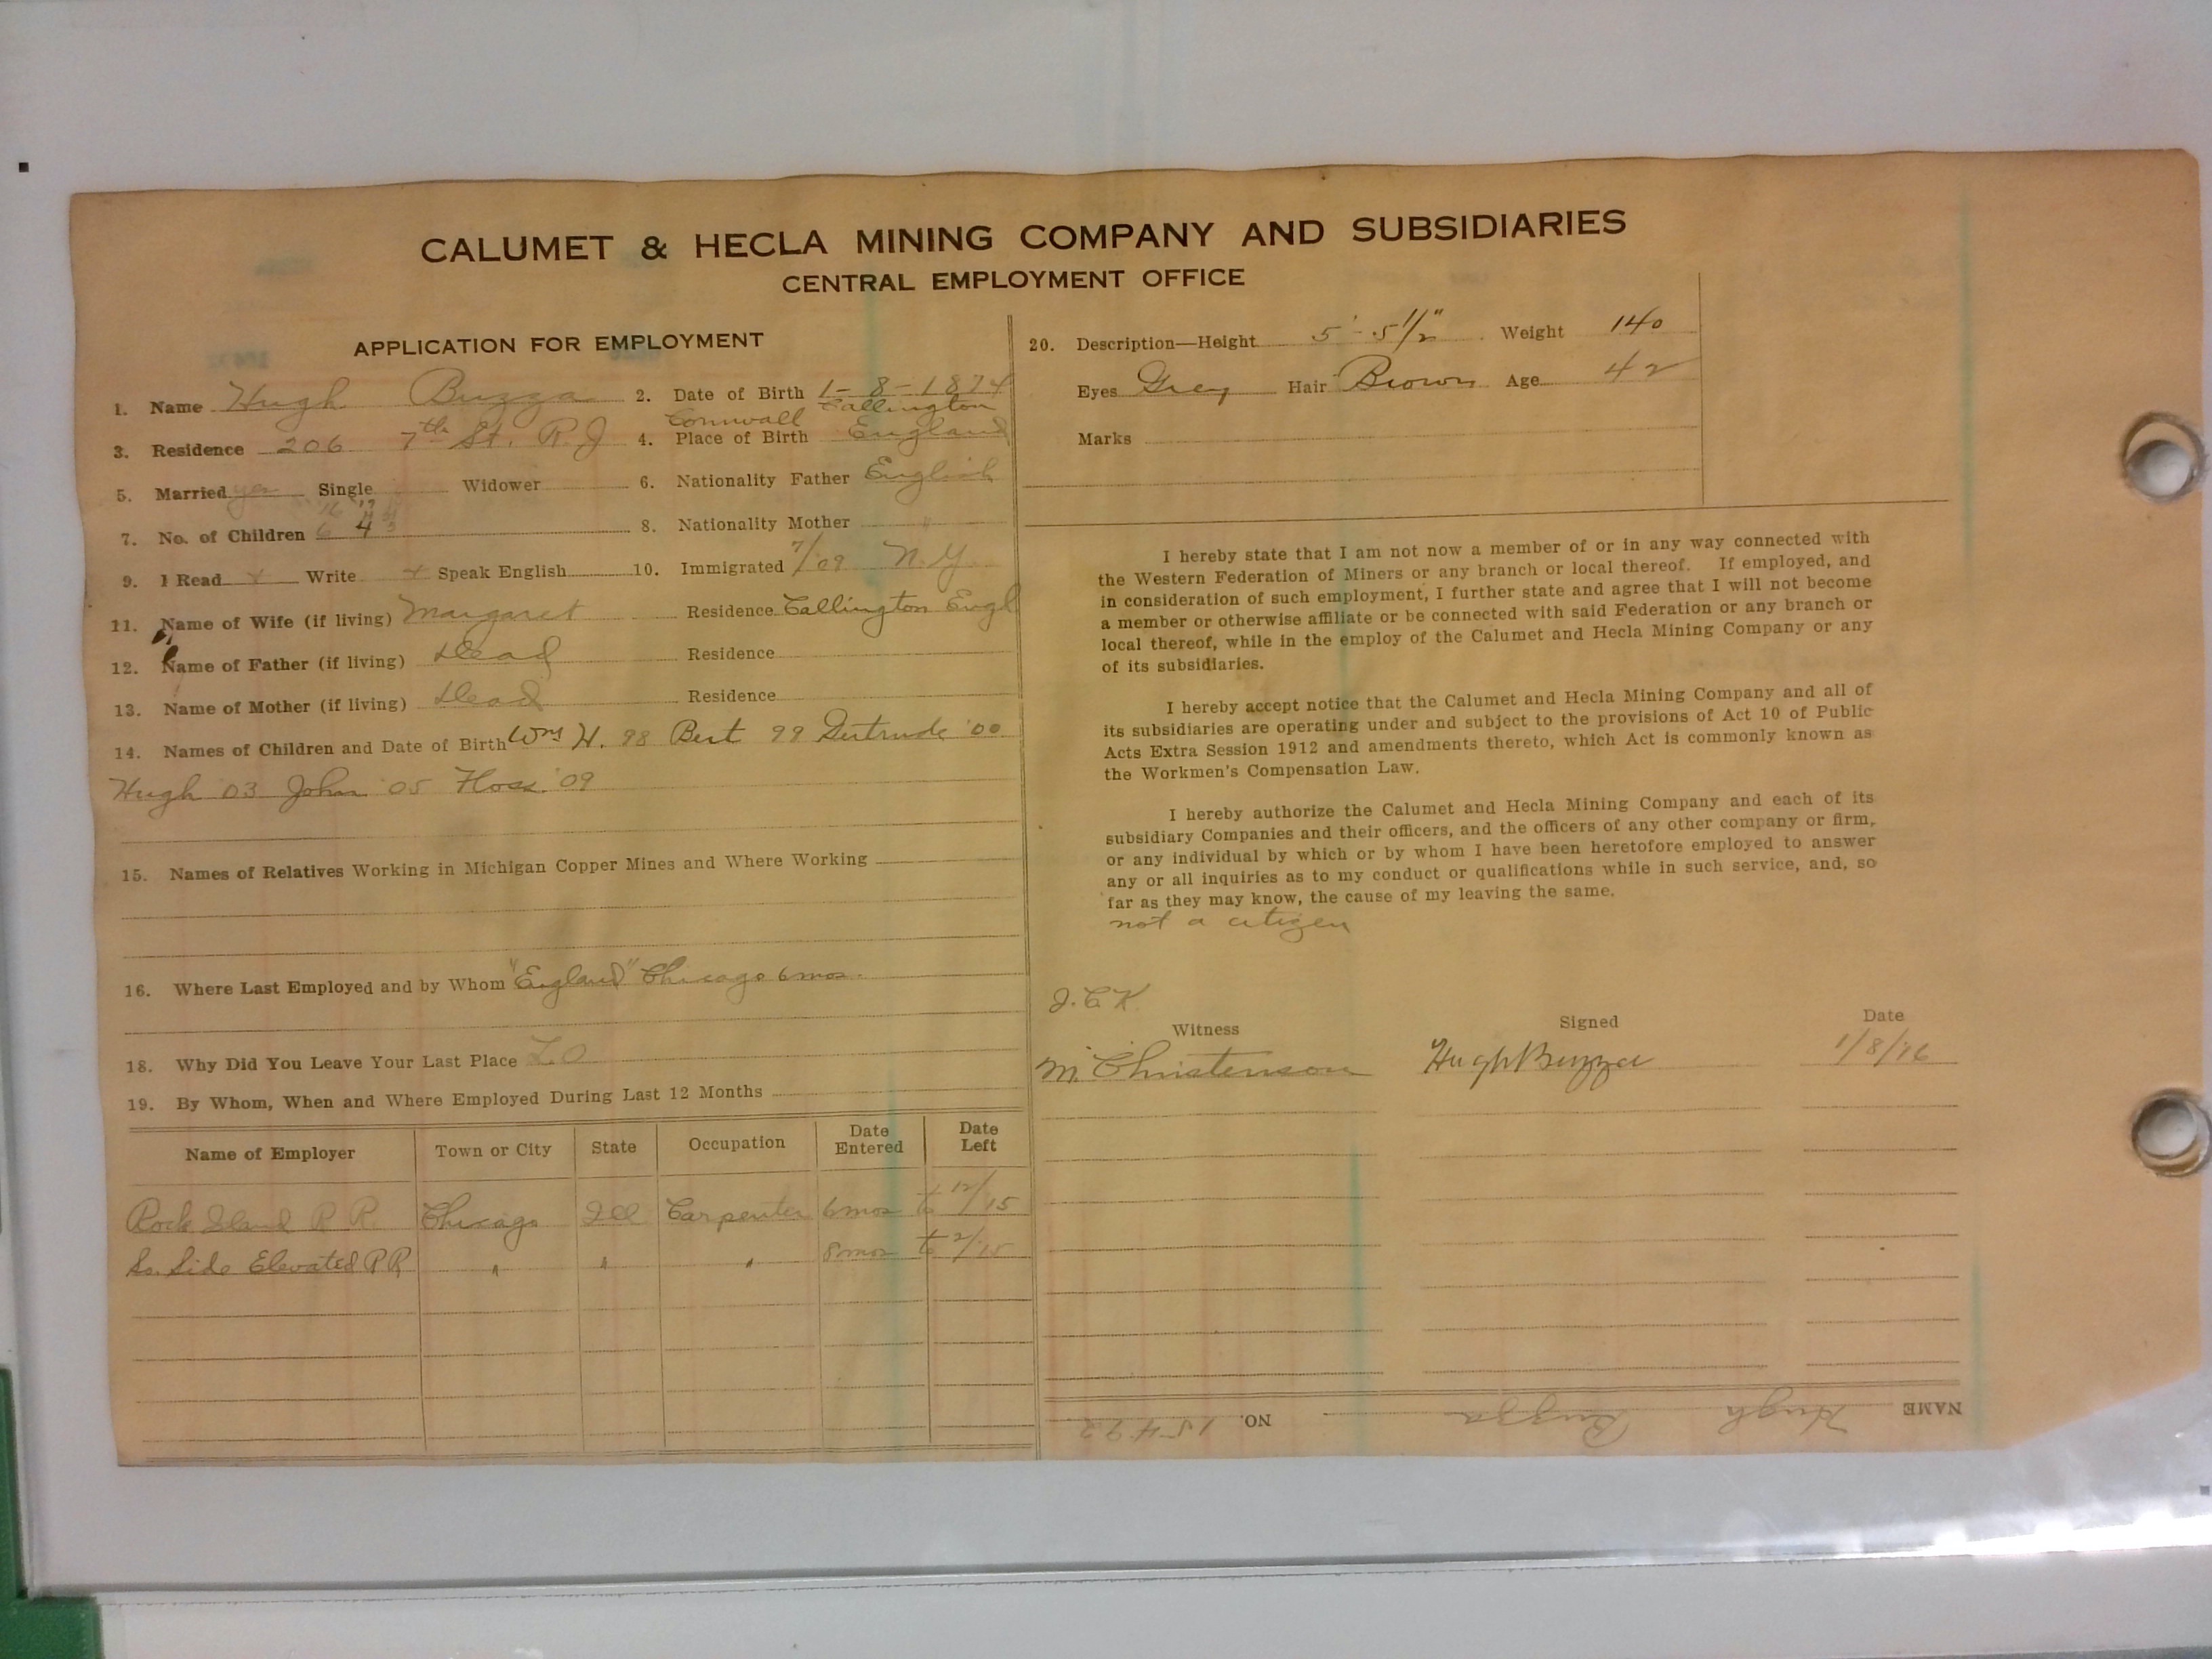 CALUMET & HECLA MINING COMPANY AND SUBSIDIARIES
CENTRAL EMPLOYMENT OFFICE
APPLICATION FOR EMPLOYMENT
1. Name Hugh Buzza 2. Date of Birth 1-8-1874
3. Residence 206 7th St. R.J 4. Place of Birth Cornwall Callington England
5. Married yes Single Widower 6. Nationality Father English
7. No. of Children 4 8. Nationality Mother "
9. I Read Write Speak English 10. Immigrated 7/'09 N.Y.
11. Name of Wife (if living) Margaret Residence Callington Engl
12. Name of Father (if living) Dead Residence
13. Name of Mother (if living) Dead Residence
14. Names of Children and Date of Birth Wm H. 98 Bert 99 Gertrude '00
Hugh 03 John '05 Floss. '09
15. Names of Relatives Working in Michigan Copper Mines and Where Working
16. Where Last Employed and by Whom "England" Chicago 6 mos.
18. Why Did You Leave Your Last Place L.O
19. By Whom, When and Where Employed During Last 12 Months
Name of Employer Town or City State Occupation Date Entered Date Left
Rock Island R R. Chicago Ill Carpenter 6 mos to 12/15
So. Side Elevated RR " " " 8 mos to 2/15
20. Description—Height 5'-5 1/2" Weight 140
Eyes Grey Hair Brown Age 42
Marks
I hereby state that I am not now a member of or in any way connected with
the Western Federation of Miners or any branch or local thereof. If employed, and
in consideration of such employment, I further state and agree that I will not become
a member or otherwise affiliate or be connected with said Federation or any branch or
local thereof, while in the employ of the Calumet and Hecla Mining Company or any
of its subsidiaries.
I hereby accept notice that the Calumet and Hecla Mining Company and all of
its subsidiaries are operating under and subject to the provisions of Act 10 of Public
Acts Extra Session 1912 and amendments thereto, which Act is commonly known as
the Workmen's Compensation Law.
I hereby authorize the Calumet and Hecla Mining Company and each of its
subsidiary Companies and their officers, and the officers of any other company or firm,
or any individual by which or by whom I have been heretofore employed to answer
any or all inquiries as to my conduct or qualifications while in such service, and, so
far as they may know, the cause of my leaving the same.
not a citizen
J.C.K.
Witness Signed Date
M. Christenson Hugh Buzza 1/8/16
NAME Hugh Buzza NO. 15492